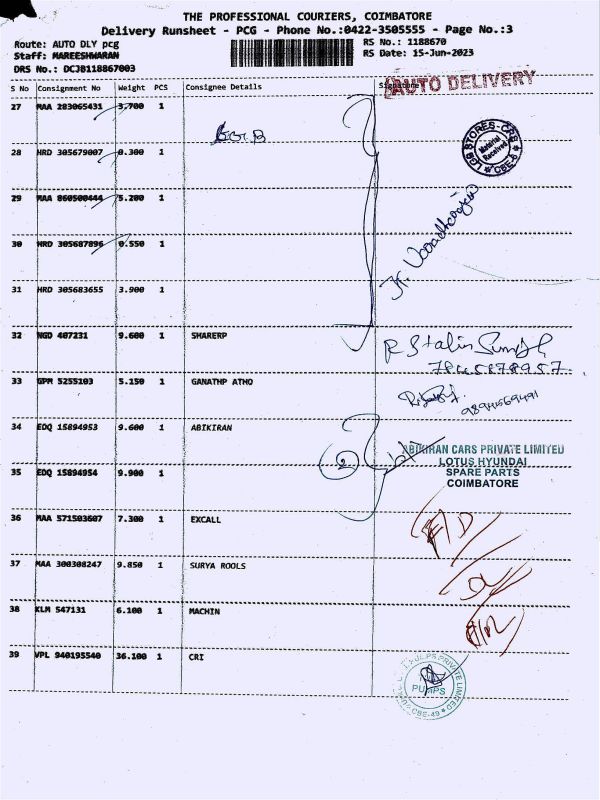 THE PROFESSIONAL COURIERS, COIMBATORE
Delivery Runsheet - PCG - Phone No.:0422-3505555 - Page No.:3
Route: AUTO DLY pcg
RS No.: 1188670
Staff: MAREESHWARAN
RS Date: 15-Jun-2023
DRS No.: DCJB118867003
S No Consignment No Weight PCS Consignee Details Signature
AUTO DELIVERY
27 MAA 283065431 3.700 1
LGB STORES-CRB
Material Received
CBE-6
28 HRD 305679007 0.300 1
29 MAA 860500444 5.200 1
30 HRD 305687896 0.550 1
31 HRD 305683655 3.900 1
32 NGD 407231 9.600 1 SHARERP
R Stalin Singh
7845878957
33 GPM 5255103 5.150 1 GANATHP ATHO
9894569491
34 EDQ 15894953 9.600 1 ABIKIRAN
2
ABIKIRAN CARS PRIVATE LIMITED
LOTUS HYUNDAI
SPARE PARTS
COIMBATORE
35 EDQ 15894954 9.900 1
36 MAA 571503607 7.300 1 EXCALL
37 MAA 300308247 9.850 1 SURYA ROOLS
38 KLM 547131 6.100 1 MACHIN
39 VPL 940195540 36.100 1 CRI
PUMPS PRIVATE LIMITED
PUMPS
CBE-49